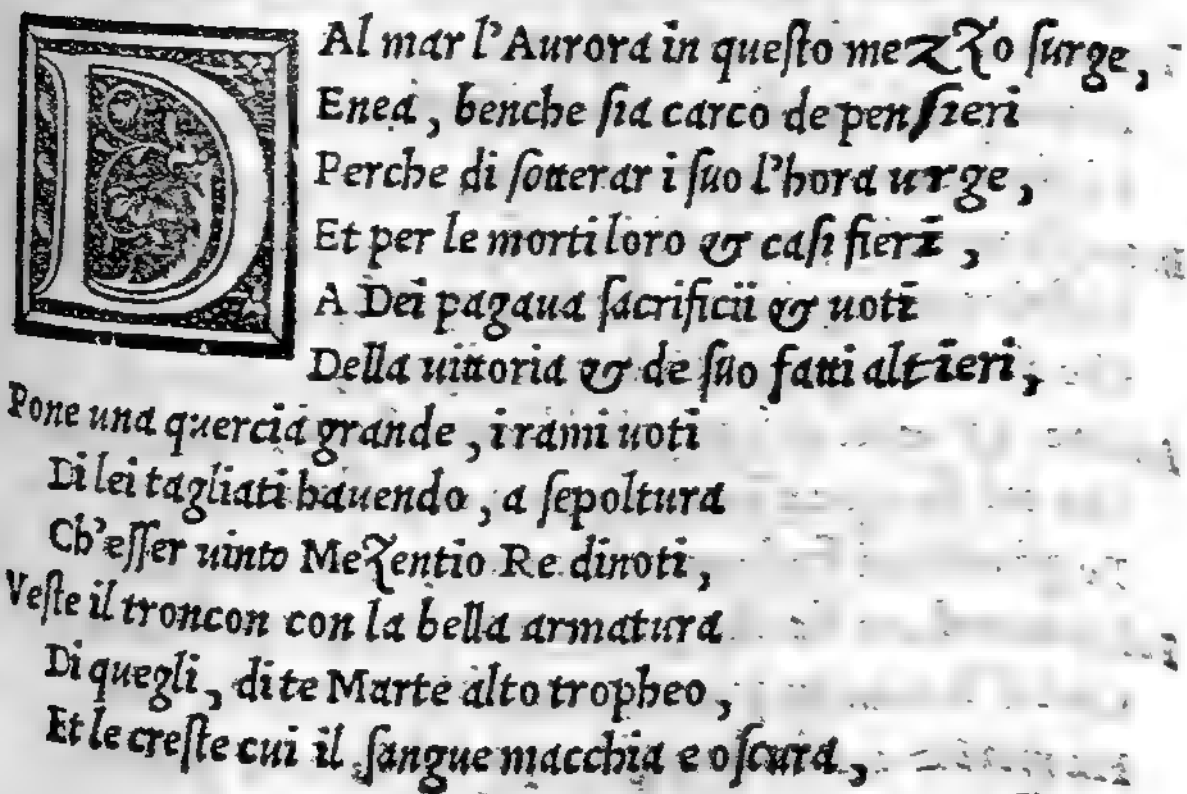 DAl mar l'Aurora in queſto mezzo ſurge,
Enea, benche ſia carco de penſieri
Perche di ſotterar i ſuo l'hora urge,
Et per le morti loro & caſi fieri,
A Dei pagaua ſacrificii & uoti
Della uittoria & de ſuo fatti altieri,
Pone una quercia grande, i rami uoti
Di lei tagliati hauendo, a ſepoltura
Ch'eſſer uinto Mezentio Re dinoti,
Veſte il troncon con la bella armatura
Di quegli, di te Marte alto tropheo,
Et le creſte cui il ſangue macchia e oſcura,